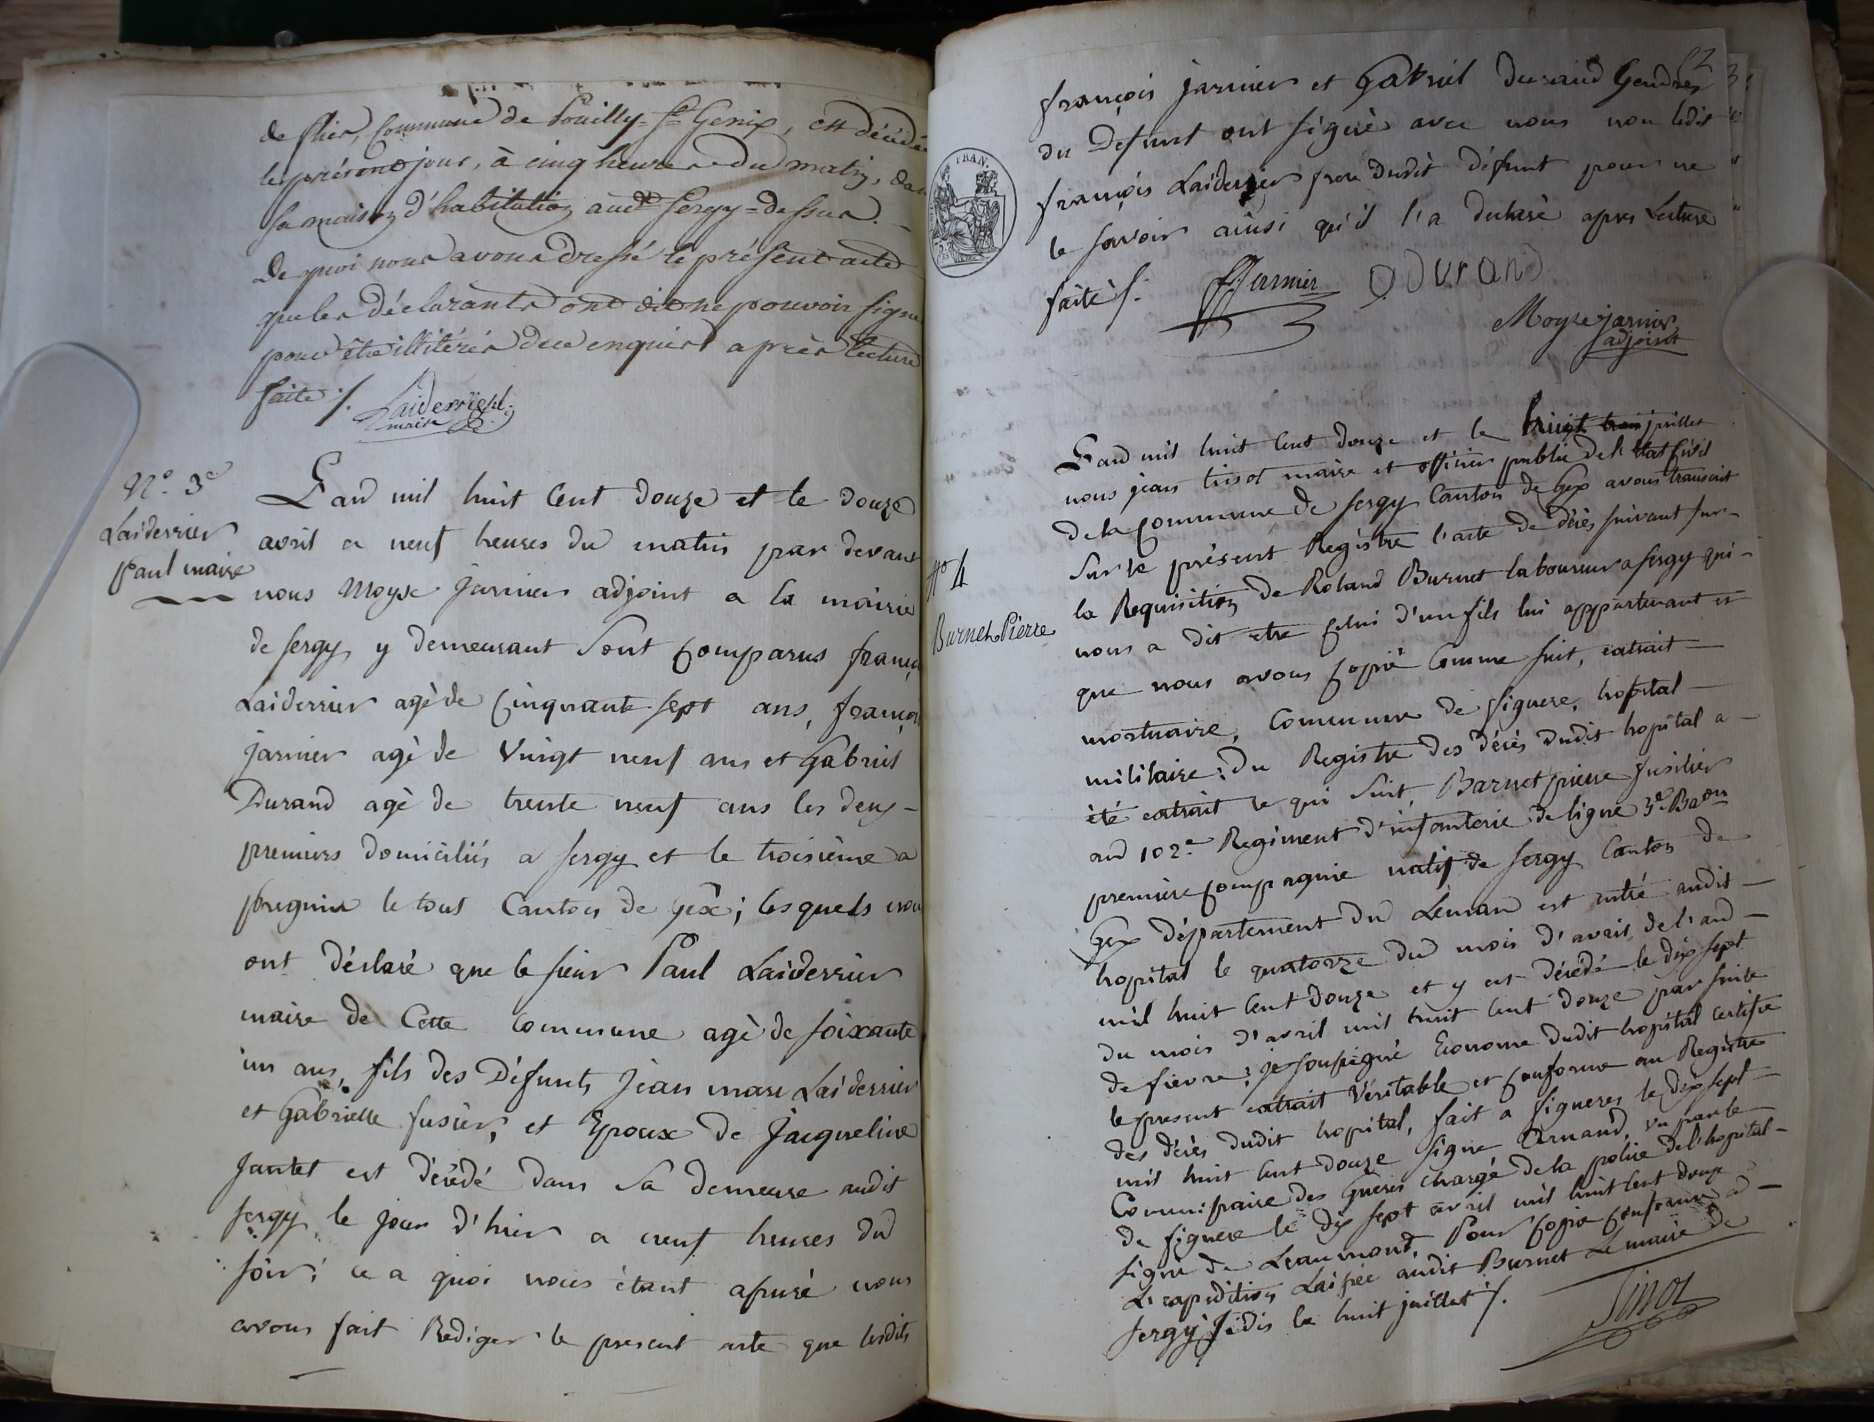 de flies, Commune de Pouilly-St Genix, est décédé
le présent jour, à cinq heures du matin, dan
sa maison d'habitation audt Sergy-dessus.
De quoi nous avons dressé le présent acte
que les déclarants ont dit ne pouvoir signe
pour être illitérés de ce enquis après lecture
faite ./.
Laiderrier
maire
No. 3e
Laiderrier
paul maire
L'an mil huit cent douze et le douze
avril a neuf heures du matin par devant
nous Moyse jarnier adjoint a la mairie
de sergy y demeurant sont comparus franço
Laiderrier agé de cinquante sept ans, françoi
jarnier agé de vuingt neuf ans et Gabriel
Durand agé de trente neuf ans les deux
premiers domiciliés a sergy et le troisième a
pregnin le tout Canton de gex; lesquels nou
ont déclaré que le sieur Paul Laiderrier
maire de Cette commune agé de soixante
un ans, fils des Défunts jean marc Laiderrier
et Gabrielle fusier, et Epoux de jacqueline
jantet est décédé dans sa demeure audit
sergy, le jour d'hier a neuf heures du
soir; ce a quoi nous étant assuré nous
avons fait Rediger le present acte que lesdits
françois jarnier et Gabriel durand Gendres
du Défunt ont signé avec nous non ledit
françois Laiderrier frere dudit défunt pour ne
le savoir ainsi qu'il l'a declaré apres Lecture
faite ./.
FRAN.
fJarnier
G DURAND
Moyse jarnier
adjoint
No 4
Burnet Pierre
L'an mil huit cent douze et le huit juillet
nous jean tinot maire et officier public de l'état Civil
de la Commune de sergy Canton de Gex avons transcrit
sur le présent Registre l'acte de décès suivant sur
la Requisition de Roland Burnet laboureur a sergy qui
nous a dit etre celui d'un fils lui appartenant et
que nous avons copié Comme suit, extrait
mortuaire, Commune de figuere, hopital
militaire; Du Registre des décès dudit hopital a
été extrait ce qui suit, Barnet pierre fusilier
aud 102e Regiment d'infanterie de ligne 3e Baon
premiere compagnie natif de sergy Canton de
Gex département du Léman est entré audit
hopital le quatorze du mois d'avril, de l'an
mil huit cent douze et y est décédé le dix sept
du mois d'avril mil huit cent douze par suite
de fievre; je soussigné Econome dudit hopital certifie
le present extrait Véritable et conforme au Registre
des décès dudit hopital, fait a figueres le dix sept
mil huit cent douze signé Arnand, vu par le
Commissaire des Guerres chargé de la police de l'hopital
de figuere le dix sept avril mil huit cent douze
signé de Leaumont, Pour copie conforme a
L'expedition Laissée audit Burnet Le maire de
sergy jedis le huit juillet ./.
Tinot